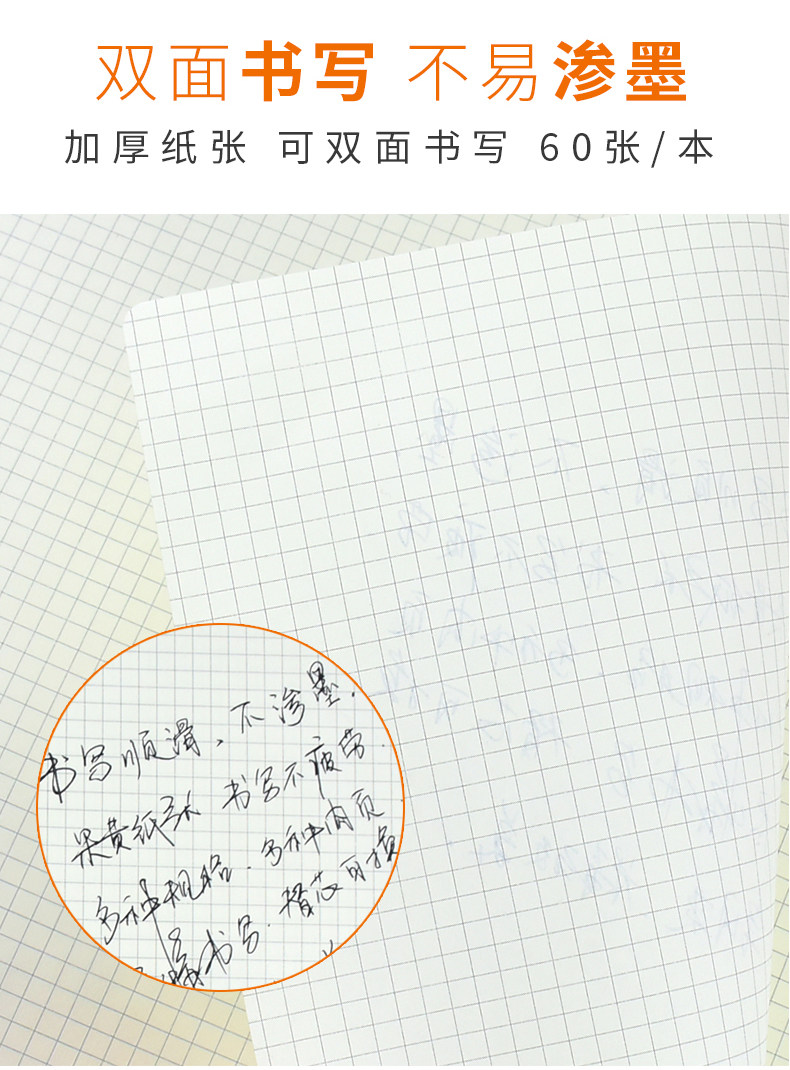 双面书写 不易渗墨
加厚纸张 可双面书写 60张/本
书写顺滑，不渗墨.
纸 书写不疲劳.
多种规格.多种内页
书写.替芯可换